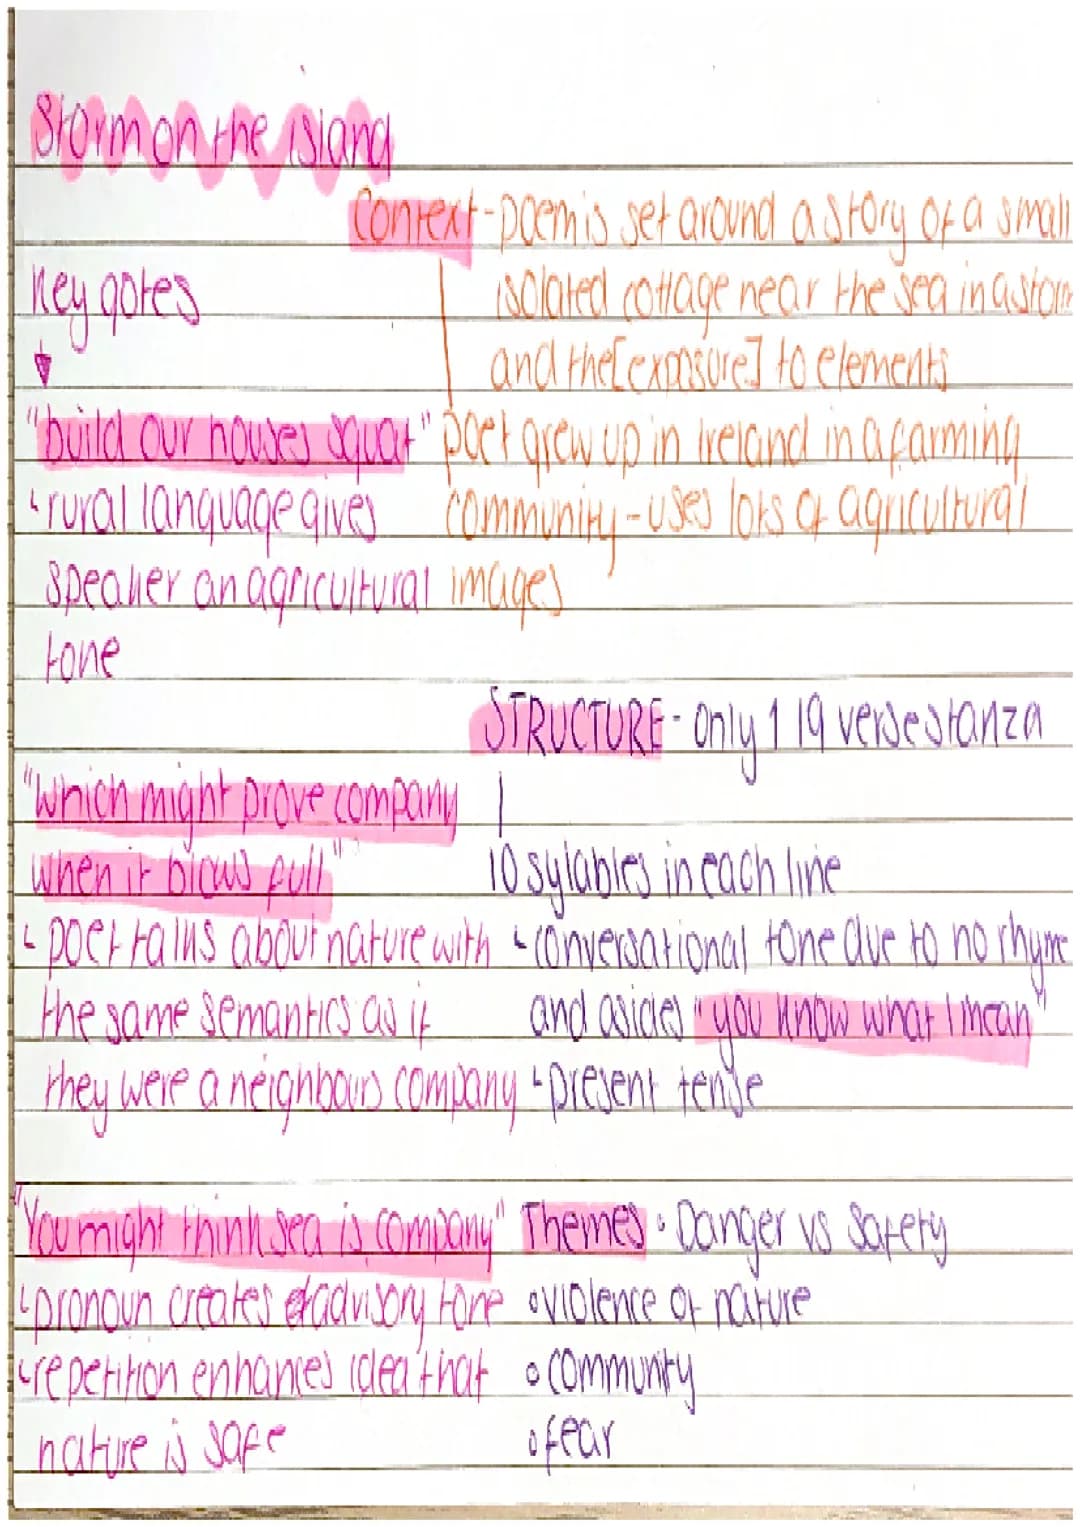 Storm on the island
Context - poem is set around a story of a small
isolated cottage near the sea in a storm
and the [exposure] to elements
poet grew up in Ireland in a farming
community - uses lots of agricultural
images
Key qotes
"build our houses squat"
rural language gives
speaker an agricultural
tone
"which might prove company
when it blows full"
poet talks about nature with
the same semantics as if
they were a neighbours company
"You might think sea is company"
pronoun creates advisory tone
repetition enhances idea that
nature is safe
STRUCTURE - only 1 19 verse stanza
10 sylables in each line
conversational tone due to no rhyme
and asides "you know what I mean"
present tense
Themes • Danger vs Safety
• violence of nature
• community
• fear